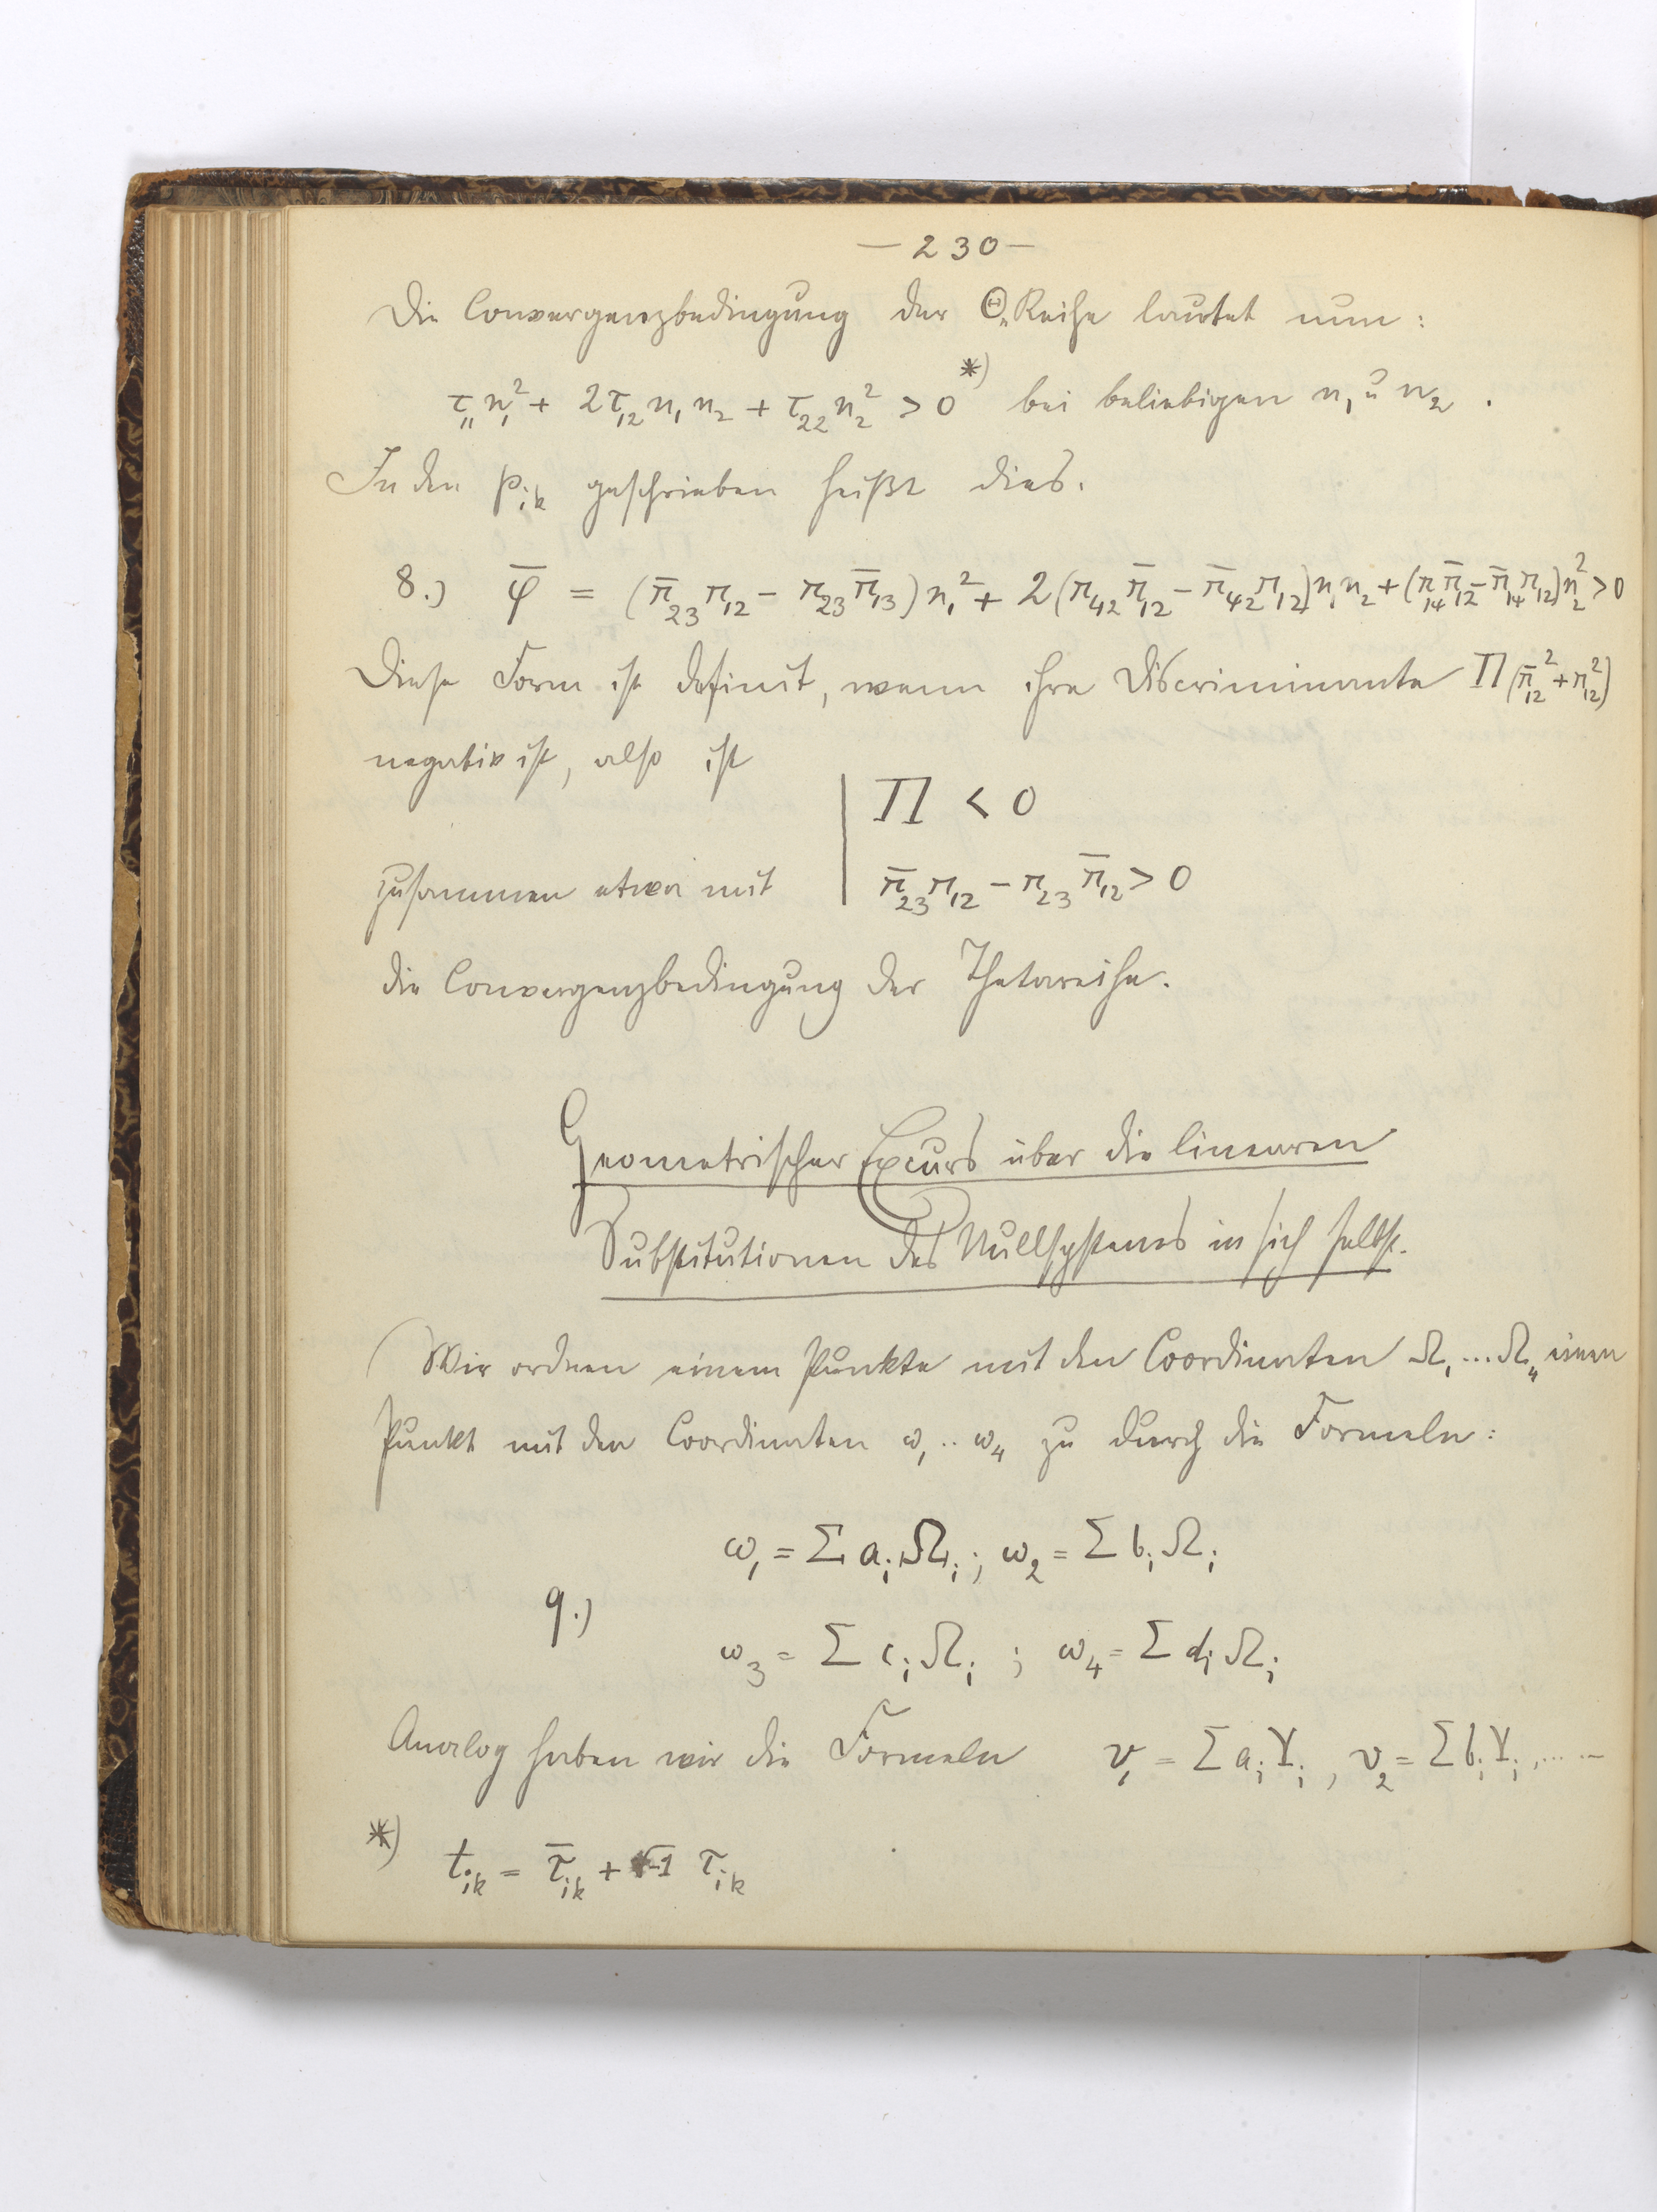 — 230 —
Die Convergenzbedingung der Θ„Reihe lautet nun:
τ₁₁n₁² + 2τ₁₂n₁n₂ + τ₂₂n₂² > 0 *) bei beliebigen n₁ u n₂.
In den pᵢₖ geschrieben heißt dies.
8.) φ̄ = (π̄₂₃π₁₂ − π₂₃π̄₁₃)n₁² + 2(π₄₂π̄₁₂ − π̄₄₂π₁₂)n₁n₂ + (π₁₄π̄₁₂ − π̄₁₄π₁₂)n₂² > 0
Diese Form ist definit, wenn ihre Discriminante Π(π̄₁₂² + π₁₂²)
negativ ist, also ist
Π < 0
zusammen etwa mit π̄₂₃π₁₂ − π₂₃π̄₁₂ > 0
die Convergenzbedingung der Thetareihe.
Geometrischer Excurs über die linearen
Substitutionen des Nullsystems in sich selbst.
Wir ordnen einem Punkte mit den Coordinaten Ω₁...Ω₄ einen
Punkt mit den Coordinaten ω₁..ω₄ zu durch die Formeln:
ω₁ = Σ aᵢΩᵢ; ω₂ = Σ bᵢΩᵢ
9.)
ω₃ = Σ cᵢΩᵢ ; ω₄ = Σ dᵢΩᵢ
Analog haben wir die Formeln v₁ = Σ aᵢYᵢ, v₂ = Σ bᵢYᵢ, .....
*) tᵢₖ = τ̄ᵢₖ + √-1 τᵢₖ